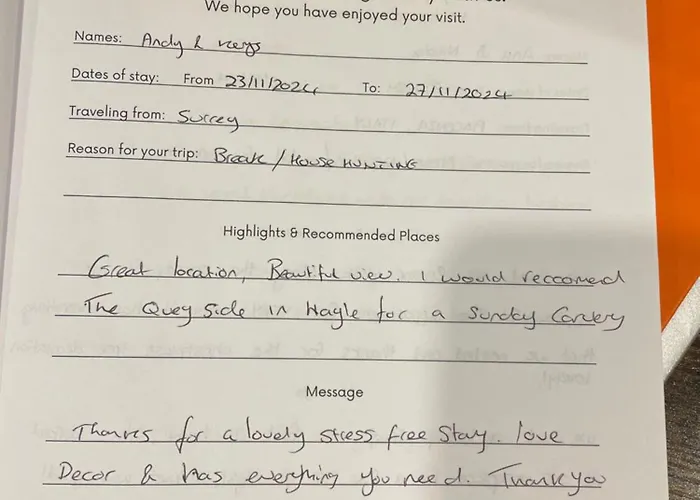 We hope you have enjoyed your visit.
Names: Andy &
Dates of stay: From 23/11/2024 To: 27/11/2024
Traveling from: Surrey
Reason for your trip: Break / HOUSE HUNTING
Highlights & Recommended Places
Great location, Beautiful view. I would reccomend
The Quey Side in Hayle for a Sunday Carvery
Message
Thanks for a lovely stress free stay. love
Decor & has everything you need. Thank you